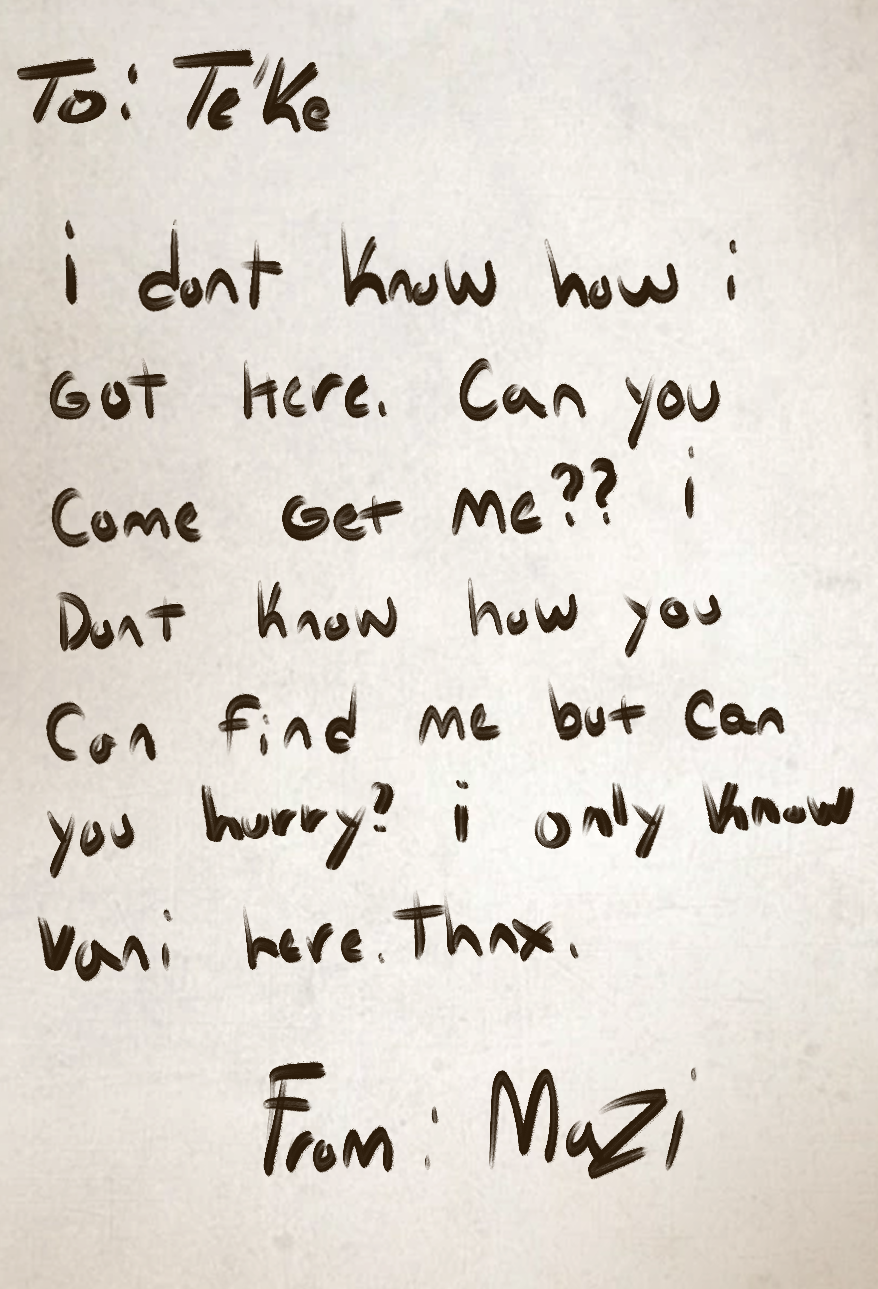 To: Te'Ke
i dont know how i
Got here. Can you
Come Get Me?? i
Dont know how you
Can find me but Can
you hurry? i only know
Vani here. Thnx.
From: MaZi